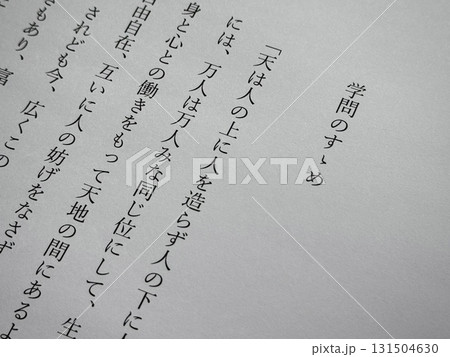 学問のすゝめ
「天は人の上に人を造らず人の下に
には、万人は万人みな同じ位にして、生
身と心との働きをもって天地の間にあるよ
自由自在、互いに人の妨げをなさず
されども今、広くこの
きもあり、富
PIXTA
131504630